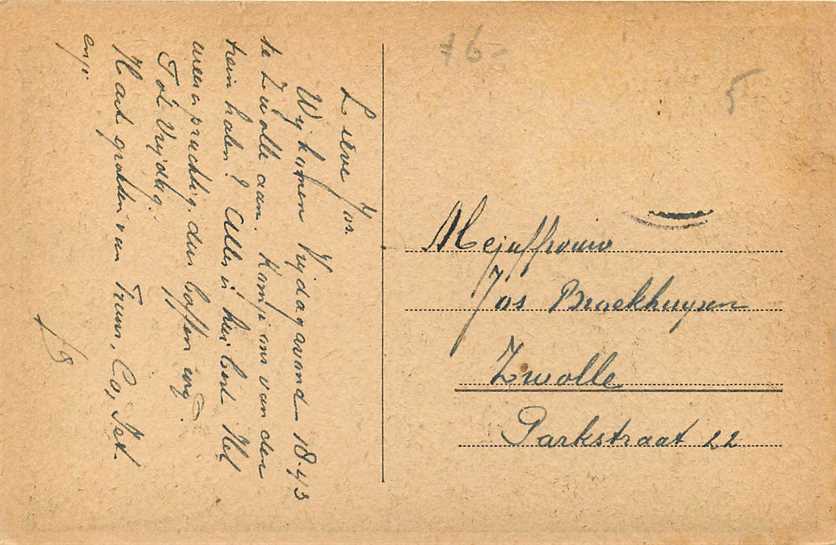 76-
5
Lieve Jos.
Wij komen Vrijdagavond 18.43
te Zwolle aan. Kom je ons van den
trein halen? Alles is hier best. Het
weer prachtig, dus boffen wij.
Tot Vrijdag.
Hart. groeten van Truus, Co, Jet.
enz.
Mejuffrouw
Jos Broekhuysen
Zwolle
Parkstraat 22